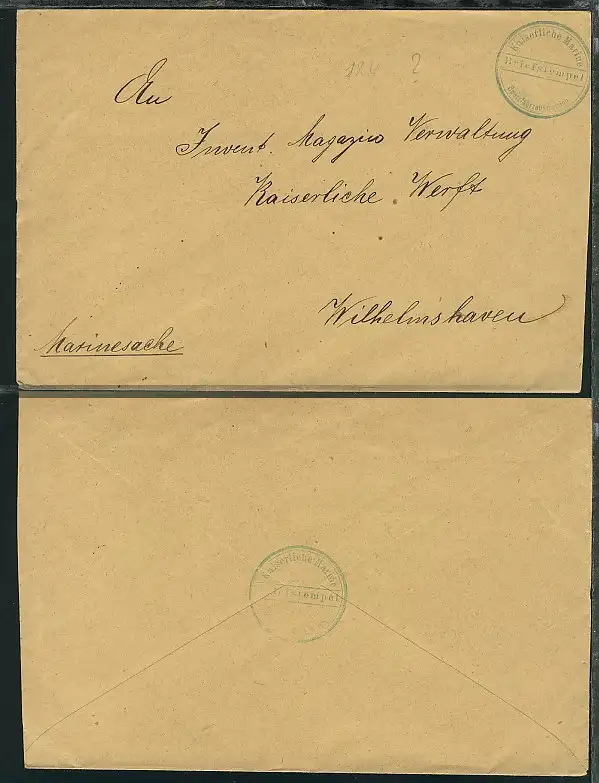 Kaiserliche Marine
Briefstempel
184 ?
An
Invent. Magazin Verwaltung
Kaiserliche Werft
Wilhelmshaven
Marinesache
Kaiserliche Marine
Briefstempel